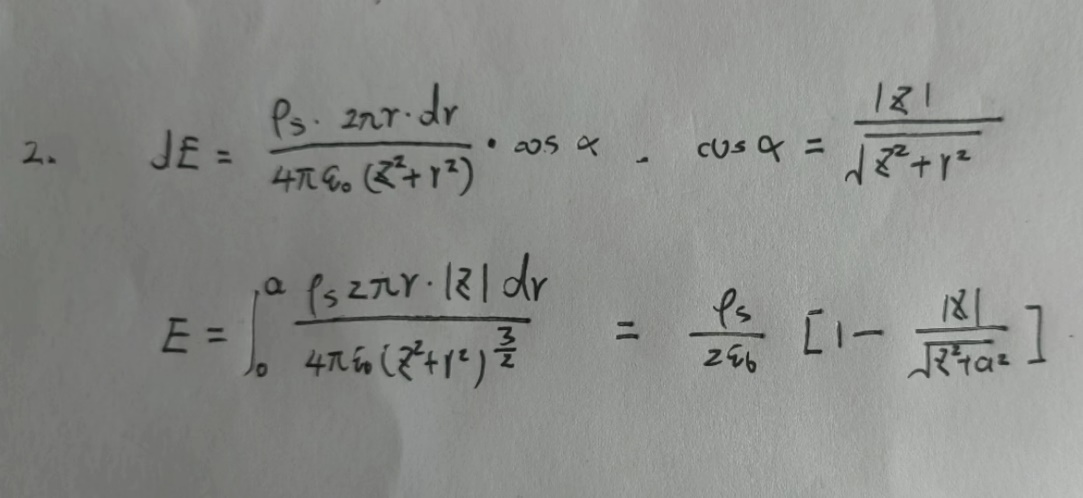 2. dE = \frac{ρ_s · 2πr · dr}{4πε_0 (z^2 + r^2)} · cos α . cos α = \frac{|z|}{\sqrt{z^2 + r^2}}
E = \int_0^a \frac{ρ_s 2πr · |z| dr}{4πε_0 (z^2 + r^2)^{\frac{3}{2}}} = \frac{ρ_s}{2ε_0} [1 - \frac{|z|}{\sqrt{z^2 + a^2}}]